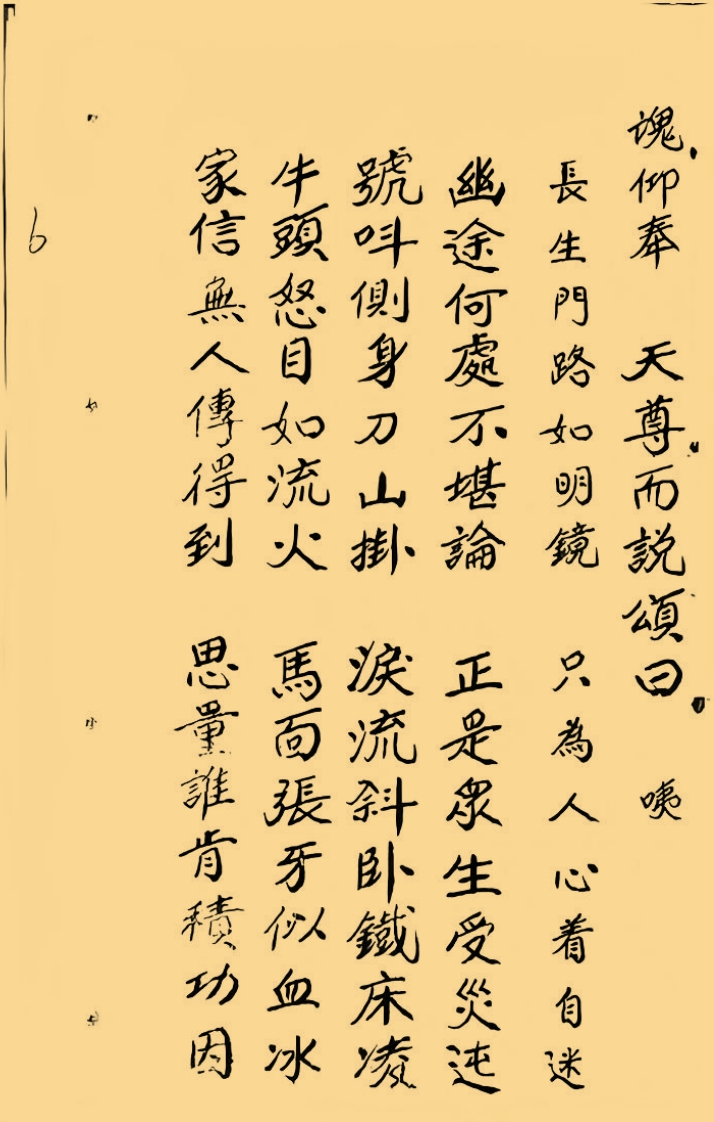 魂仰奉　天尊而説頌曰　咦
長生門路如明鏡　只為人心着自迷
幽途何處不堪論　正是眾生受災迍
號呌側身刀山掛　淚流斜卧鐵床凌
牛頭怒目如流火　馬面張牙似血冰
家信無人傳得到　思量誰肯積功因
6